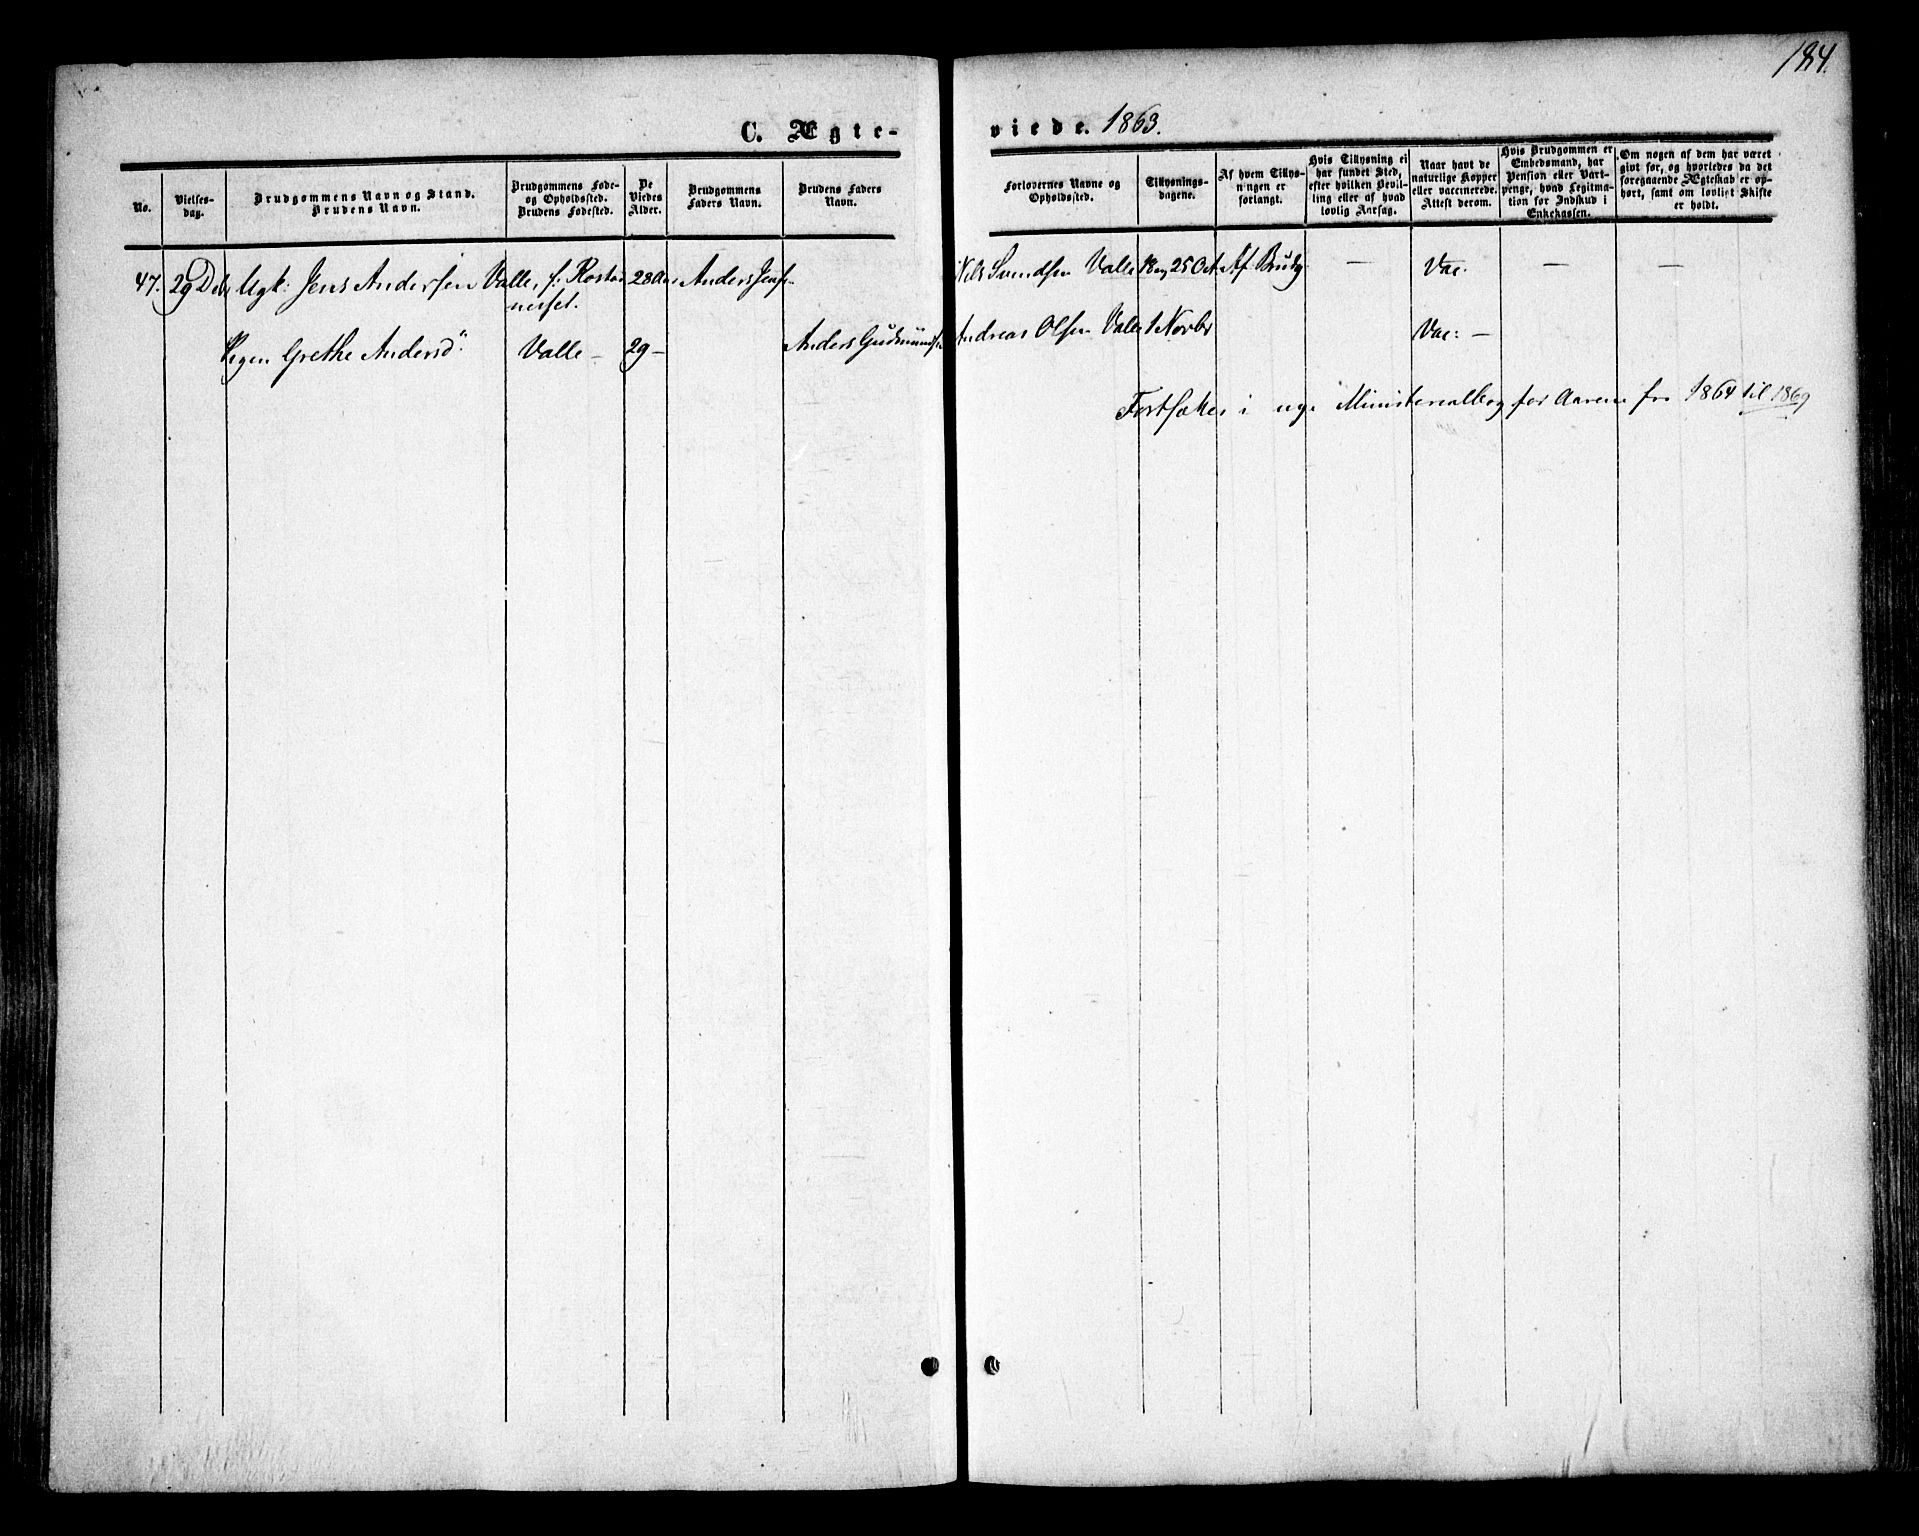 184.
C. Ægte-
viede. 1863.
No.
Vielses-
dag.
Brudgommens Navn og Stand.
Brudens Navn.
Brudgommens Føde-
og Opholdssted.
Brudens Fødested.
De
Viedes
Alder.
Brudgommens
Faders Navn.
Brudens Faders
Navn.
Forlovernes Navne og
Opholdssted.
Tillysnings-
dagene.
Af hvem Tillys-
ningen er
forlangt.
Hvis Tillysning ei
har fundet Sted,
efter hvilken Bevil-
ling eller af hvad
lovlig Aarsag.
Naar havt de
naturlige Kopper
eller vaccinerede.
Attest derom.
Hvis Brudgommen er
Embedsmand, har
Pension eller Vart-
penge, hvad Legitma-
tion for Indskud i
Enkekassen.
Om nogen af dem har været
givt før, og hvorledes da det
foregaaende Ægteskab er op-
hørt, samt om lovligt Skifte
er holdt.
47. 29 Dec Ugk: Jens Andersen Valle, f: Rostad 28 Aar Anders Jens- Nils Svendsen Valle 18 og 25 Oct Af Brudg — Vac. — —
nerset.
Pigen Grethe Andersd: Valle — 29 — Anders Gudmunds Andreas Olsen Valle 1 Novbr Vac: —
Fortsættes i nye Ministerialbog for Aarene fra 1864 til 1869